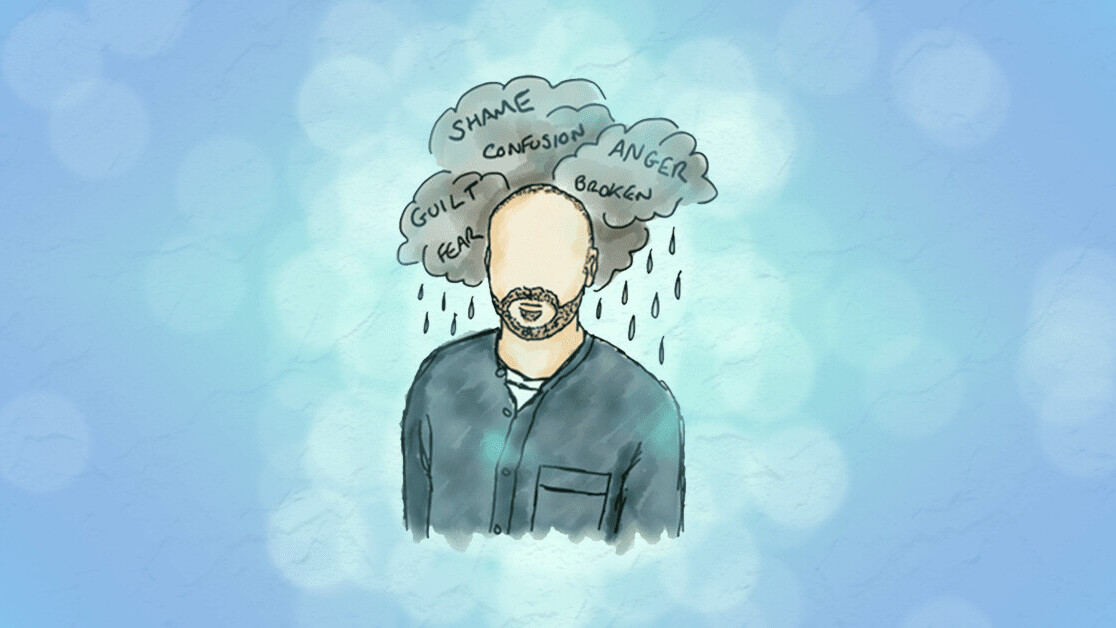 SHAME
CONFUSION
ANGER
BROKEN
GUILT
FEAR